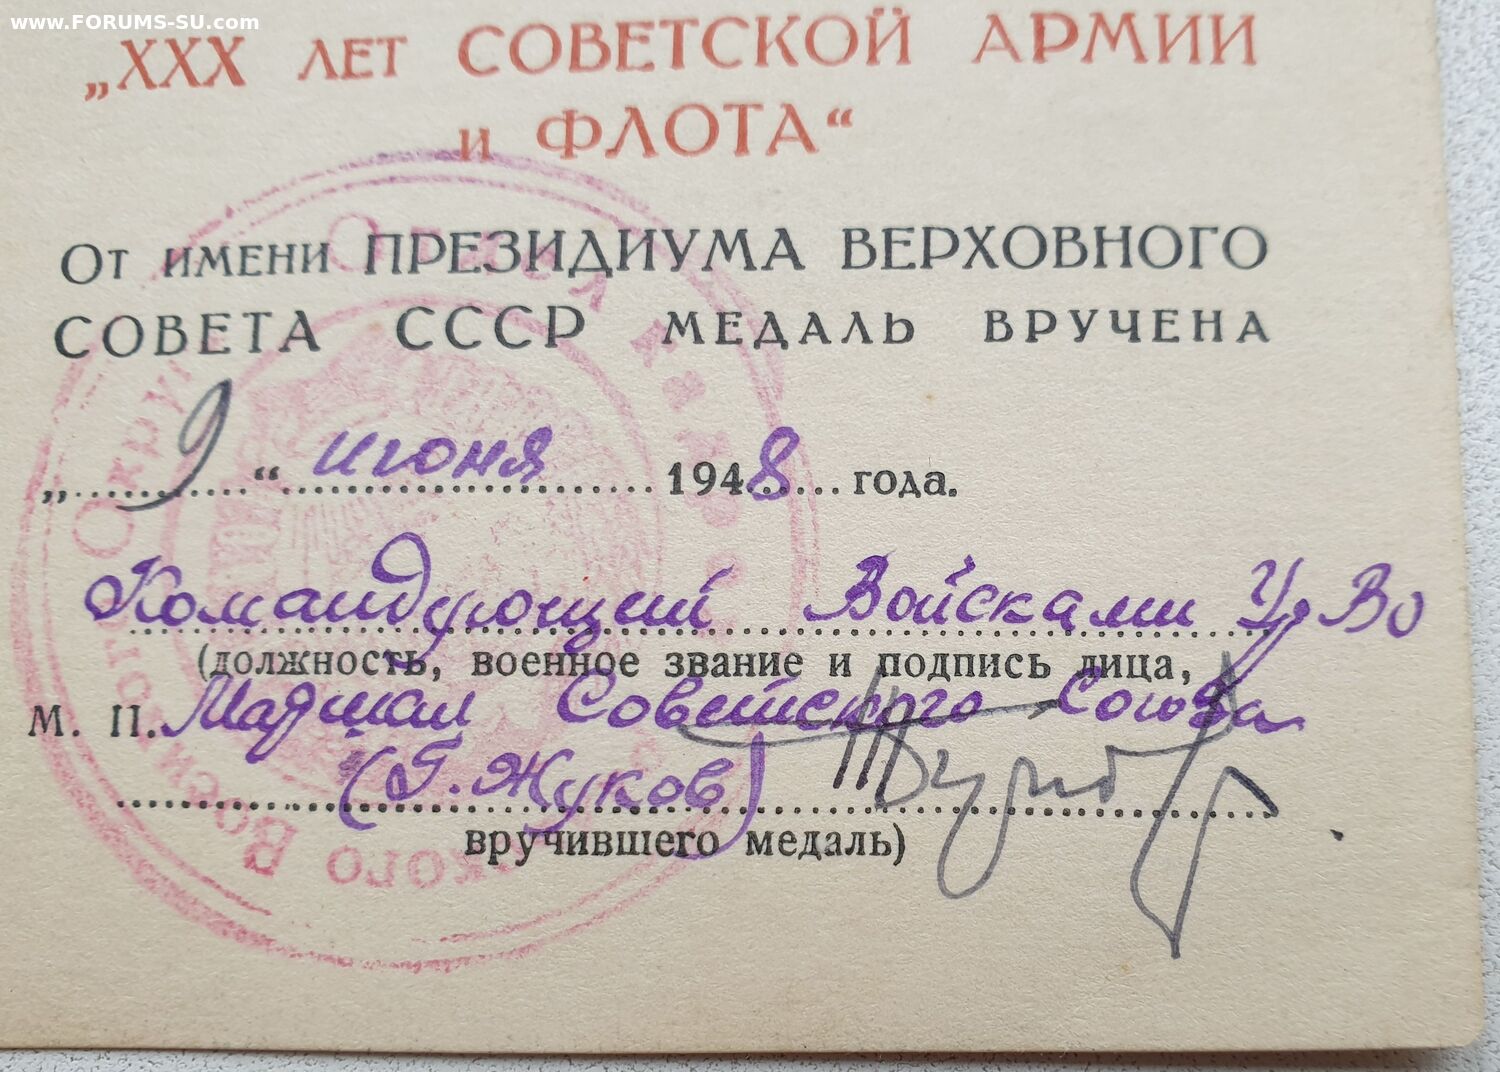 www.FORUMS-SU.com
„XXX ЛЕТ СОВЕТСКОЙ АРМИИ
и ФЛОТА“
От имени ПРЕЗИДИУМА ВЕРХОВНОГО
СОВЕТА СССР МЕДАЛЬ ВРУЧЕНА
„9“ июня 1948 года.
Командующий Войсками УрВо
(должность, военное звание и подпись лица,
М. П. Маршал Советского Союза
(Г. Жуков)
вручившего медаль)